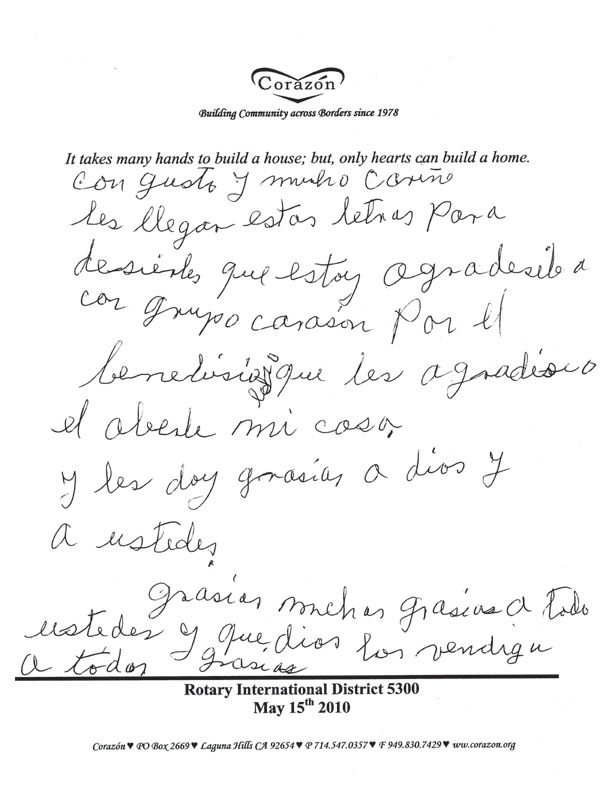 Corazón
Building Community across Borders since 1978
It takes many hands to build a house; but, only hearts can build a home.
con gusto y mucho cariñe
les llegar estas letras para
desierles que estoy agradesida
con grupo carasón Por el
benedisión que les agradisco
el aberle mi casa,
y les doy grasias a dios y
a ustedes,
grasias muchas grasias a todo
ustedes y que dios los vendiga
a todos grasias
Rotary International District 5300
May 15th 2010
Corazón ♥ PO Box 2669 ♥ Laguna Hills CA 92654 ♥ P 714.547.0357 ♥ F 949.830.7429 ♥ ww.corazon.org